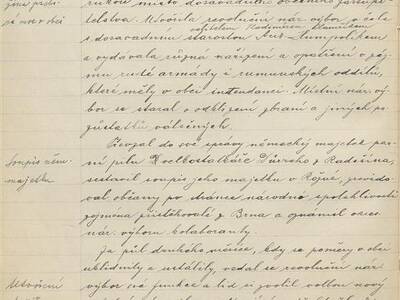 místo dosavadního obecního zastupi-
telstva. Utvořila revoluční nár. výbor v čele
s dosavadním starostou Ant.
a vydávala různá nařízení a opatření v zá-
jmu ruské armády i rumunských oddílů,
které měly v obci intendanci. Místní nár. vý-
bor se staral o odklizení zbraní a jiných po-
zůstatků válečných.
Soupis něm.
majetku
Převzal do své správy německý majetek par-
ní pilu z Radešína,
sestavil soupis jeho majetku v Rožné, prověřo-
val občany po stránce národní spolehlivosti
zejména přistěhovalé z Brna a oznámil okres.
nár. výboru kolaboranty.
Za půl druhého měsíce, kdy se poměry v obci
uklidnily a ustálily, vzdal se revoluční nár.
výbor své funkce a lid si zvolil volbou nový
Utvoření